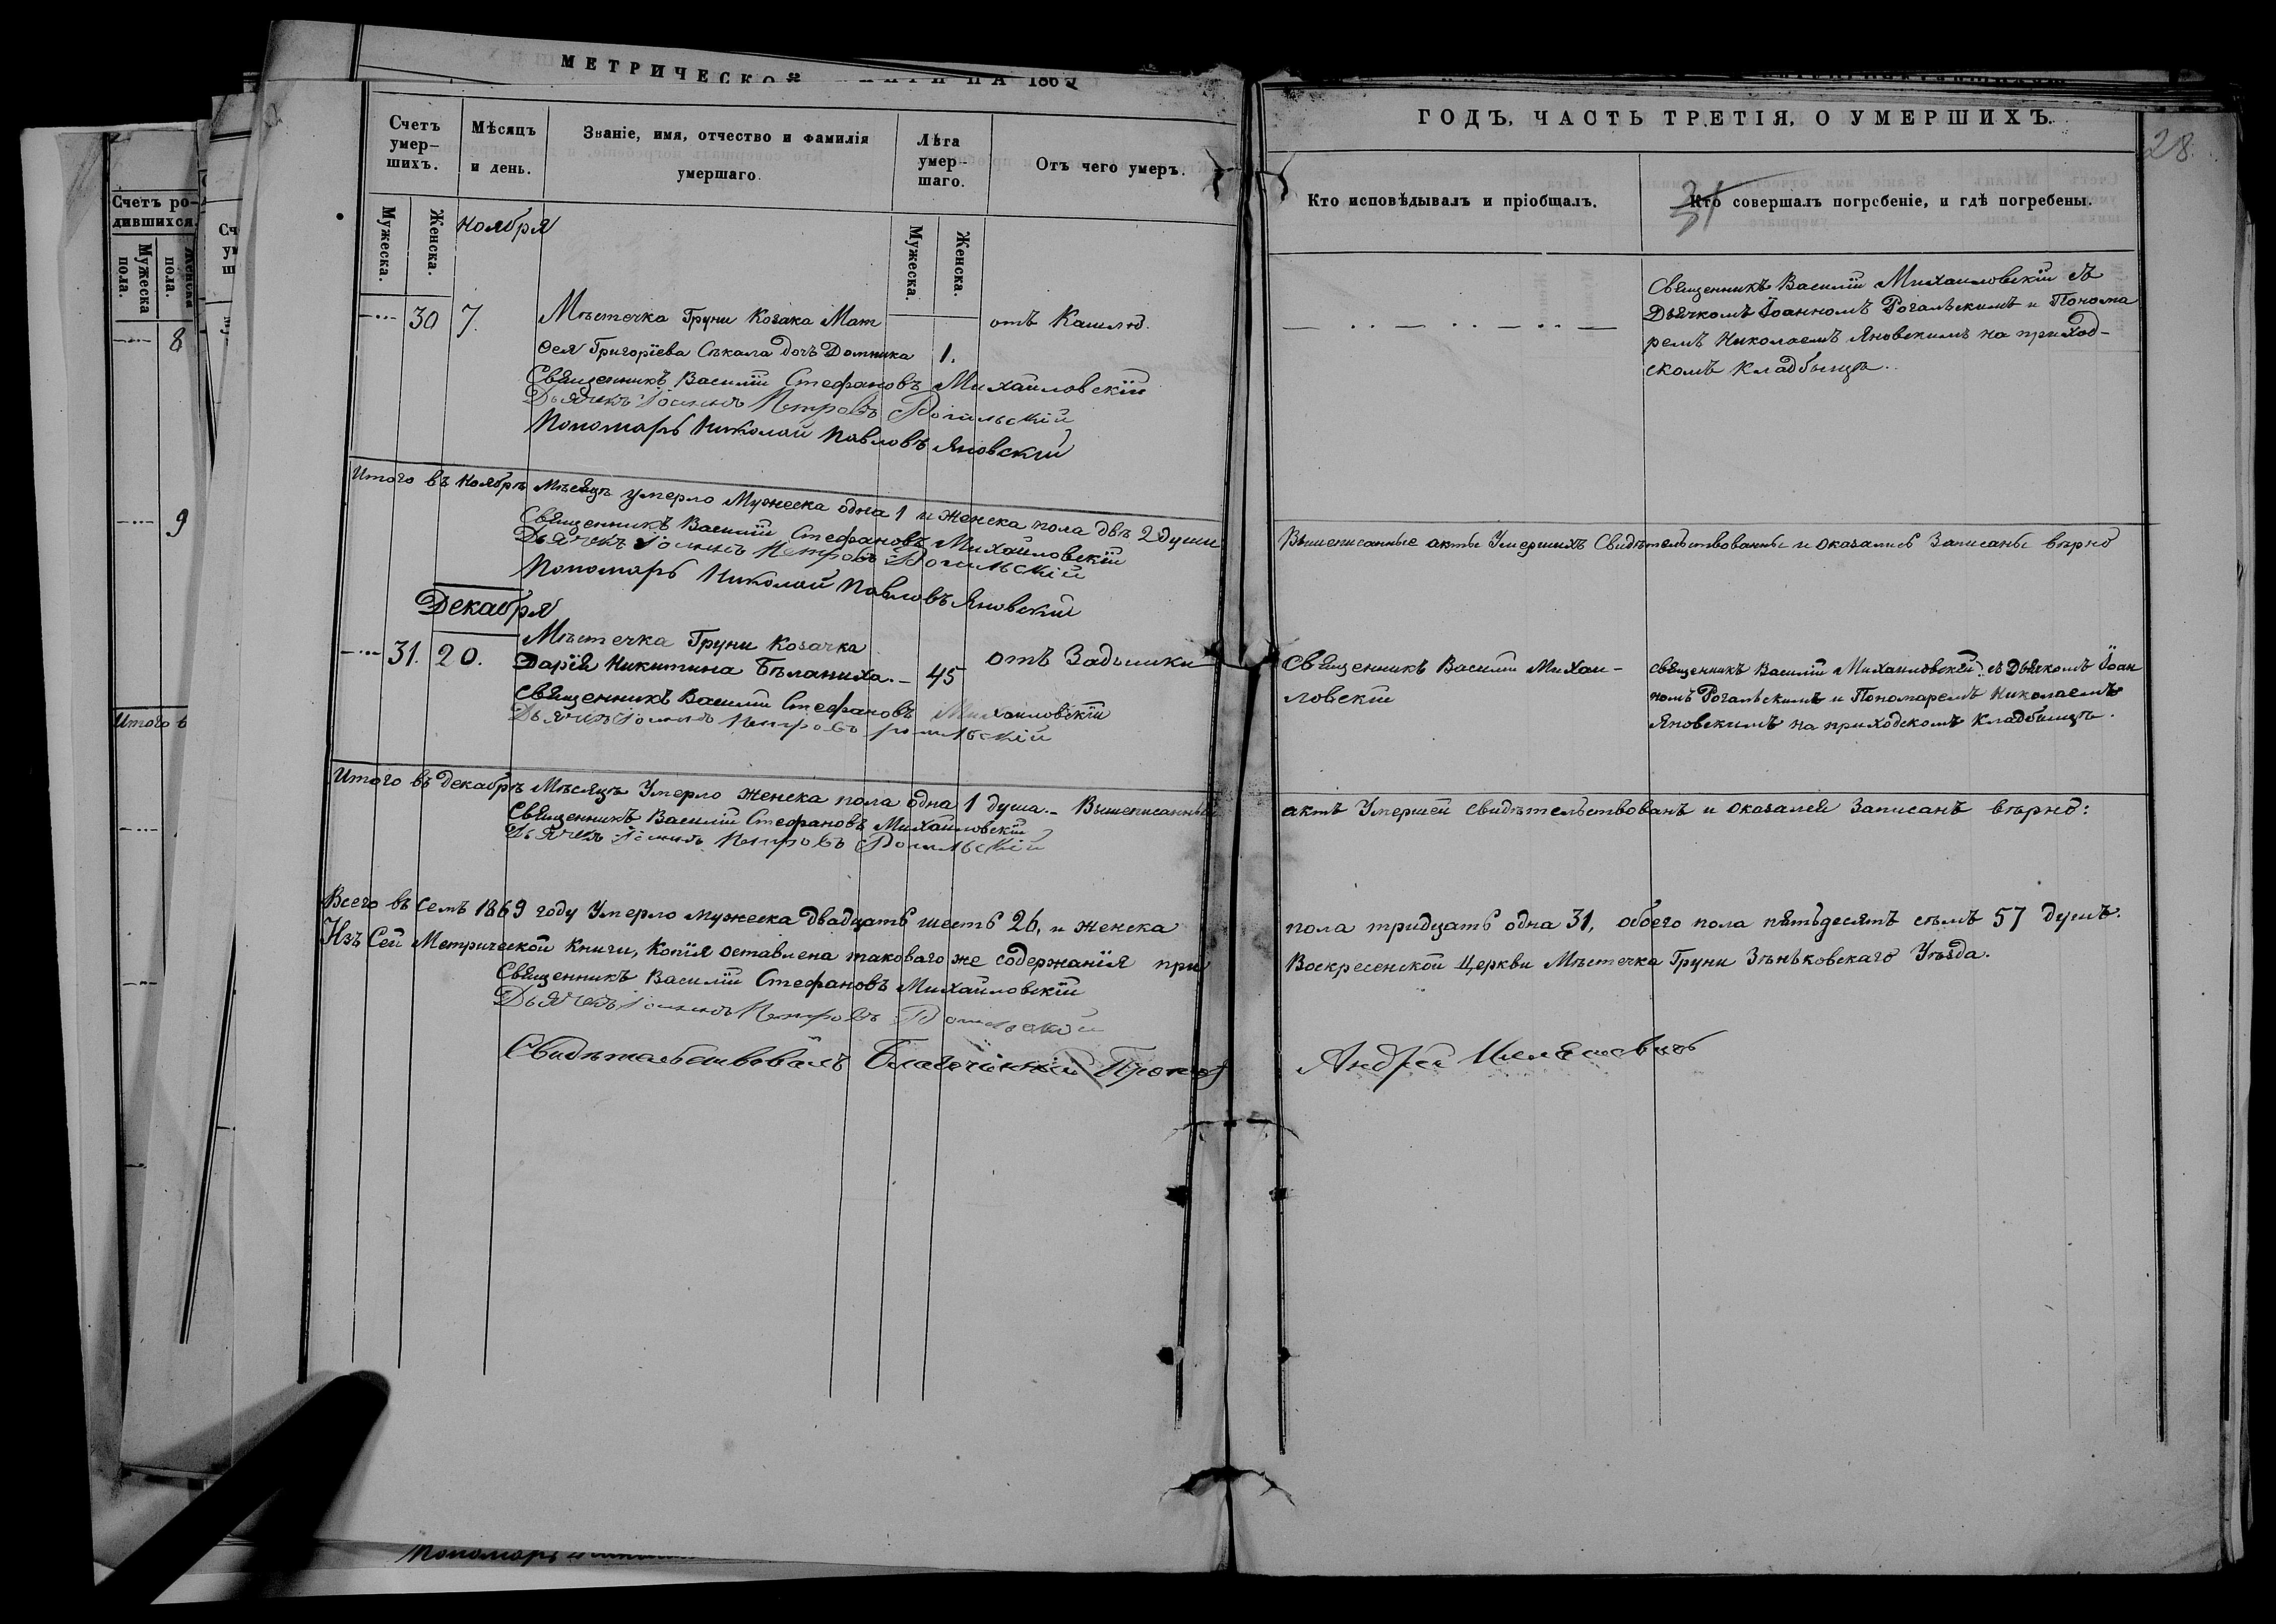 МЕТРИЧЕСКОЙ
НА 1869
Счетъ умер-
шихъ.
Мѣсяцъ
и день.
Званіе, имя, отчество и фамилія
умершаго.
Лѣта
умер-
шаго.
Отъ чего умеръ.
Мужеска.
Женска.
Ноября
Мужеска.
Женска.
30 7. Мѣстечка Груни Козака Мат
ѳея Григоріева Сѣкала дочь Домника 1. отъ Кашлю.
Священникъ Василій Стефановъ Михайловскій
Дьячекъ Іоаннъ Петровъ Рогальскій
Пономарь Николай Павловъ Яновскій
Итого въ Ноябрѣ Мѣсяцѣ умерло Мужеска одна 1 и женска пола двѣ 2 души
Священникъ Василій Стефановъ Михайловскій
Дьячекъ Іоаннъ Петровъ Рогальскій
Пономарь Николай Павловъ Яновскій
Декабря
31. 20. Мѣстечка Груни Козачка
Дарія Никитина Бѣланиха. 45 отъ Задышки
Священникъ Василій Стефановъ Михайловскій
Дьячекъ Іоаннъ Петровъ Рогальскій
Итого въ Декабрѣ Мѣсяцѣ Умерло женска пола одна 1 душа. Вышеписанный
Священникъ Василій Стефановъ Михайловскій
Дьячекъ Іоаннъ Петровъ Рогальскій
Всего въ семъ 1869 году Умерло мужеска двадцать шесть 26, и женска
Изъ Сей Метрической Книги, Копія оставлена таковаго же содержанія при
Священникъ Василій Стефановъ Михайловскій
Дьячекъ Іоаннъ Петровъ Рогальскій
Свидѣтельствовалъ Благочинный
ГОДЪ, ЧАСТЬ ТРЕТІЯ, О УМЕРШИХЪ.
28.
Кто исповѣдывалъ и пріобщалъ.
31
Кто совершалъ погребеніе, и гдѣ погребены.
Священникъ Василій Михаиловскій съ
Дьячкомъ Іоанномъ Рогальскимъ и Понома
ремъ Николаемъ Яновскимъ на приход-
скомъ кладбыщѣ.
Вышеписанные акты Умершихъ Свидѣтельствованы и оказались Записаны вѣрно
Священникъ Василій Михаи-
ловскій
священникъ Василій Михаиловскій съ Дьячкомъ Іоан
номъ Рогальскимъ и Пономаремъ Николаемъ
Яновскимъ на приходскомъ кладбищѣ.
актъ Умершей свидѣтельствованъ и оказался Записанъ вѣрно:
пола тридцать одна 31, обоего пола пятьдесятъ сѣмъ 57 душъ.
Воскресенской Церкви Мѣстечка Груни Зѣньковскаго Уѣзда.
Андрей
Счетъ ро-
дившихся.
Мужеска
пола.
Женска
пола.
8
9
Итого в
Пономарь